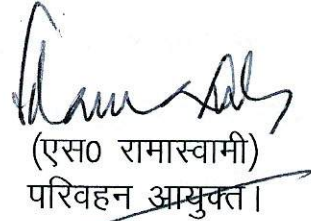 (एस0 रामास्वामी)
परिवहन आयुक्त।